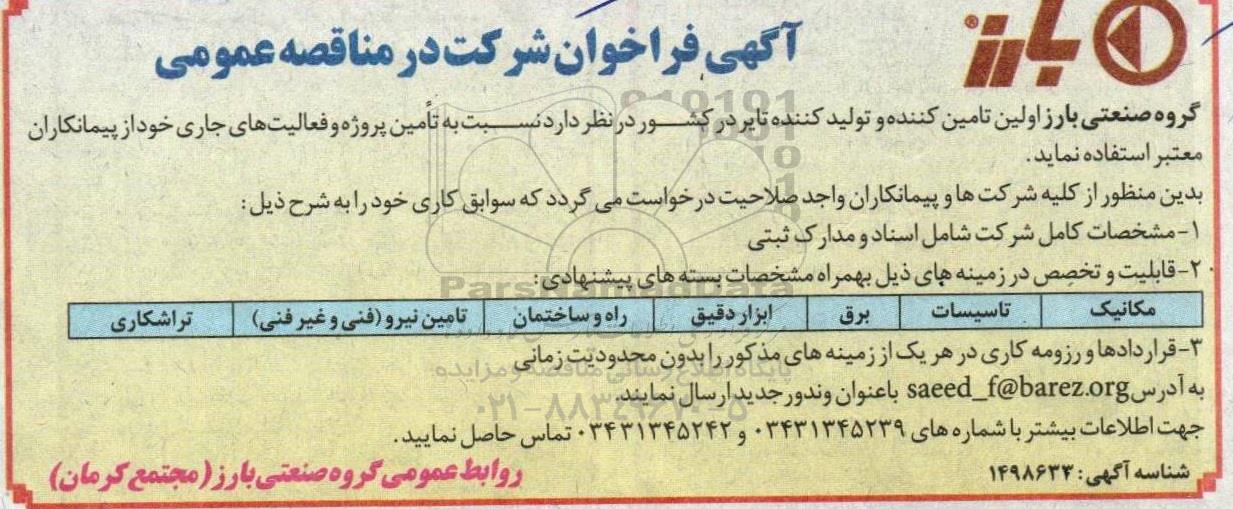 بارز®
آگهی فراخوان شرکت در مناقصه عمومی
گروه صنعتی بارز اولین تامین کننده و تولید کننده تایر در کشور در نظر دارد نسبت به تأمین پروژه و فعالیت‌های جاری خود از پیمانکاران
معتبر استفاده نماید.
بدین منظور از کلیه شرکت ها و پیمانکاران واجد صلاحیت درخواست می گردد که سوابق کاری خود را به شرح ذیل:
۱-مشخصات کامل شرکت شامل اسناد و مدارک ثبتی
۲-قابلیت و تخصص در زمینه های ذیل بهمراه مشخصات بسته های پیشنهادی:
مکانیک تاسیسات برق ابزار دقیق راه و ساختمان تامین نیرو (فنی و غیر فنی) تراشکاری
۳-قراردادها و رزومه کاری در هر یک از زمینه های مذکور را بدون محدودیت زمانی
به آدرس saeed_f@barez.org باعنوان وندور جدید ارسال نمایند.
جهت اطلاعات بیشتر با شماره های ۰۳۴۳۱۳۴۵۲۳۹ و ۰۳۴۳۱۳۴۵۲۴۲ تماس حاصل نمایید.
شناسه آگهی: ۱۴۹۸۶۳۳
روابط عمومی گروه صنعتی بارز (مجتمع کرمان)
ParsNamadData
پایگاه اطلاع رسانی مناقصه و مزایده
۰۲۱-۸۸۳۴۹۶۷۰-۵